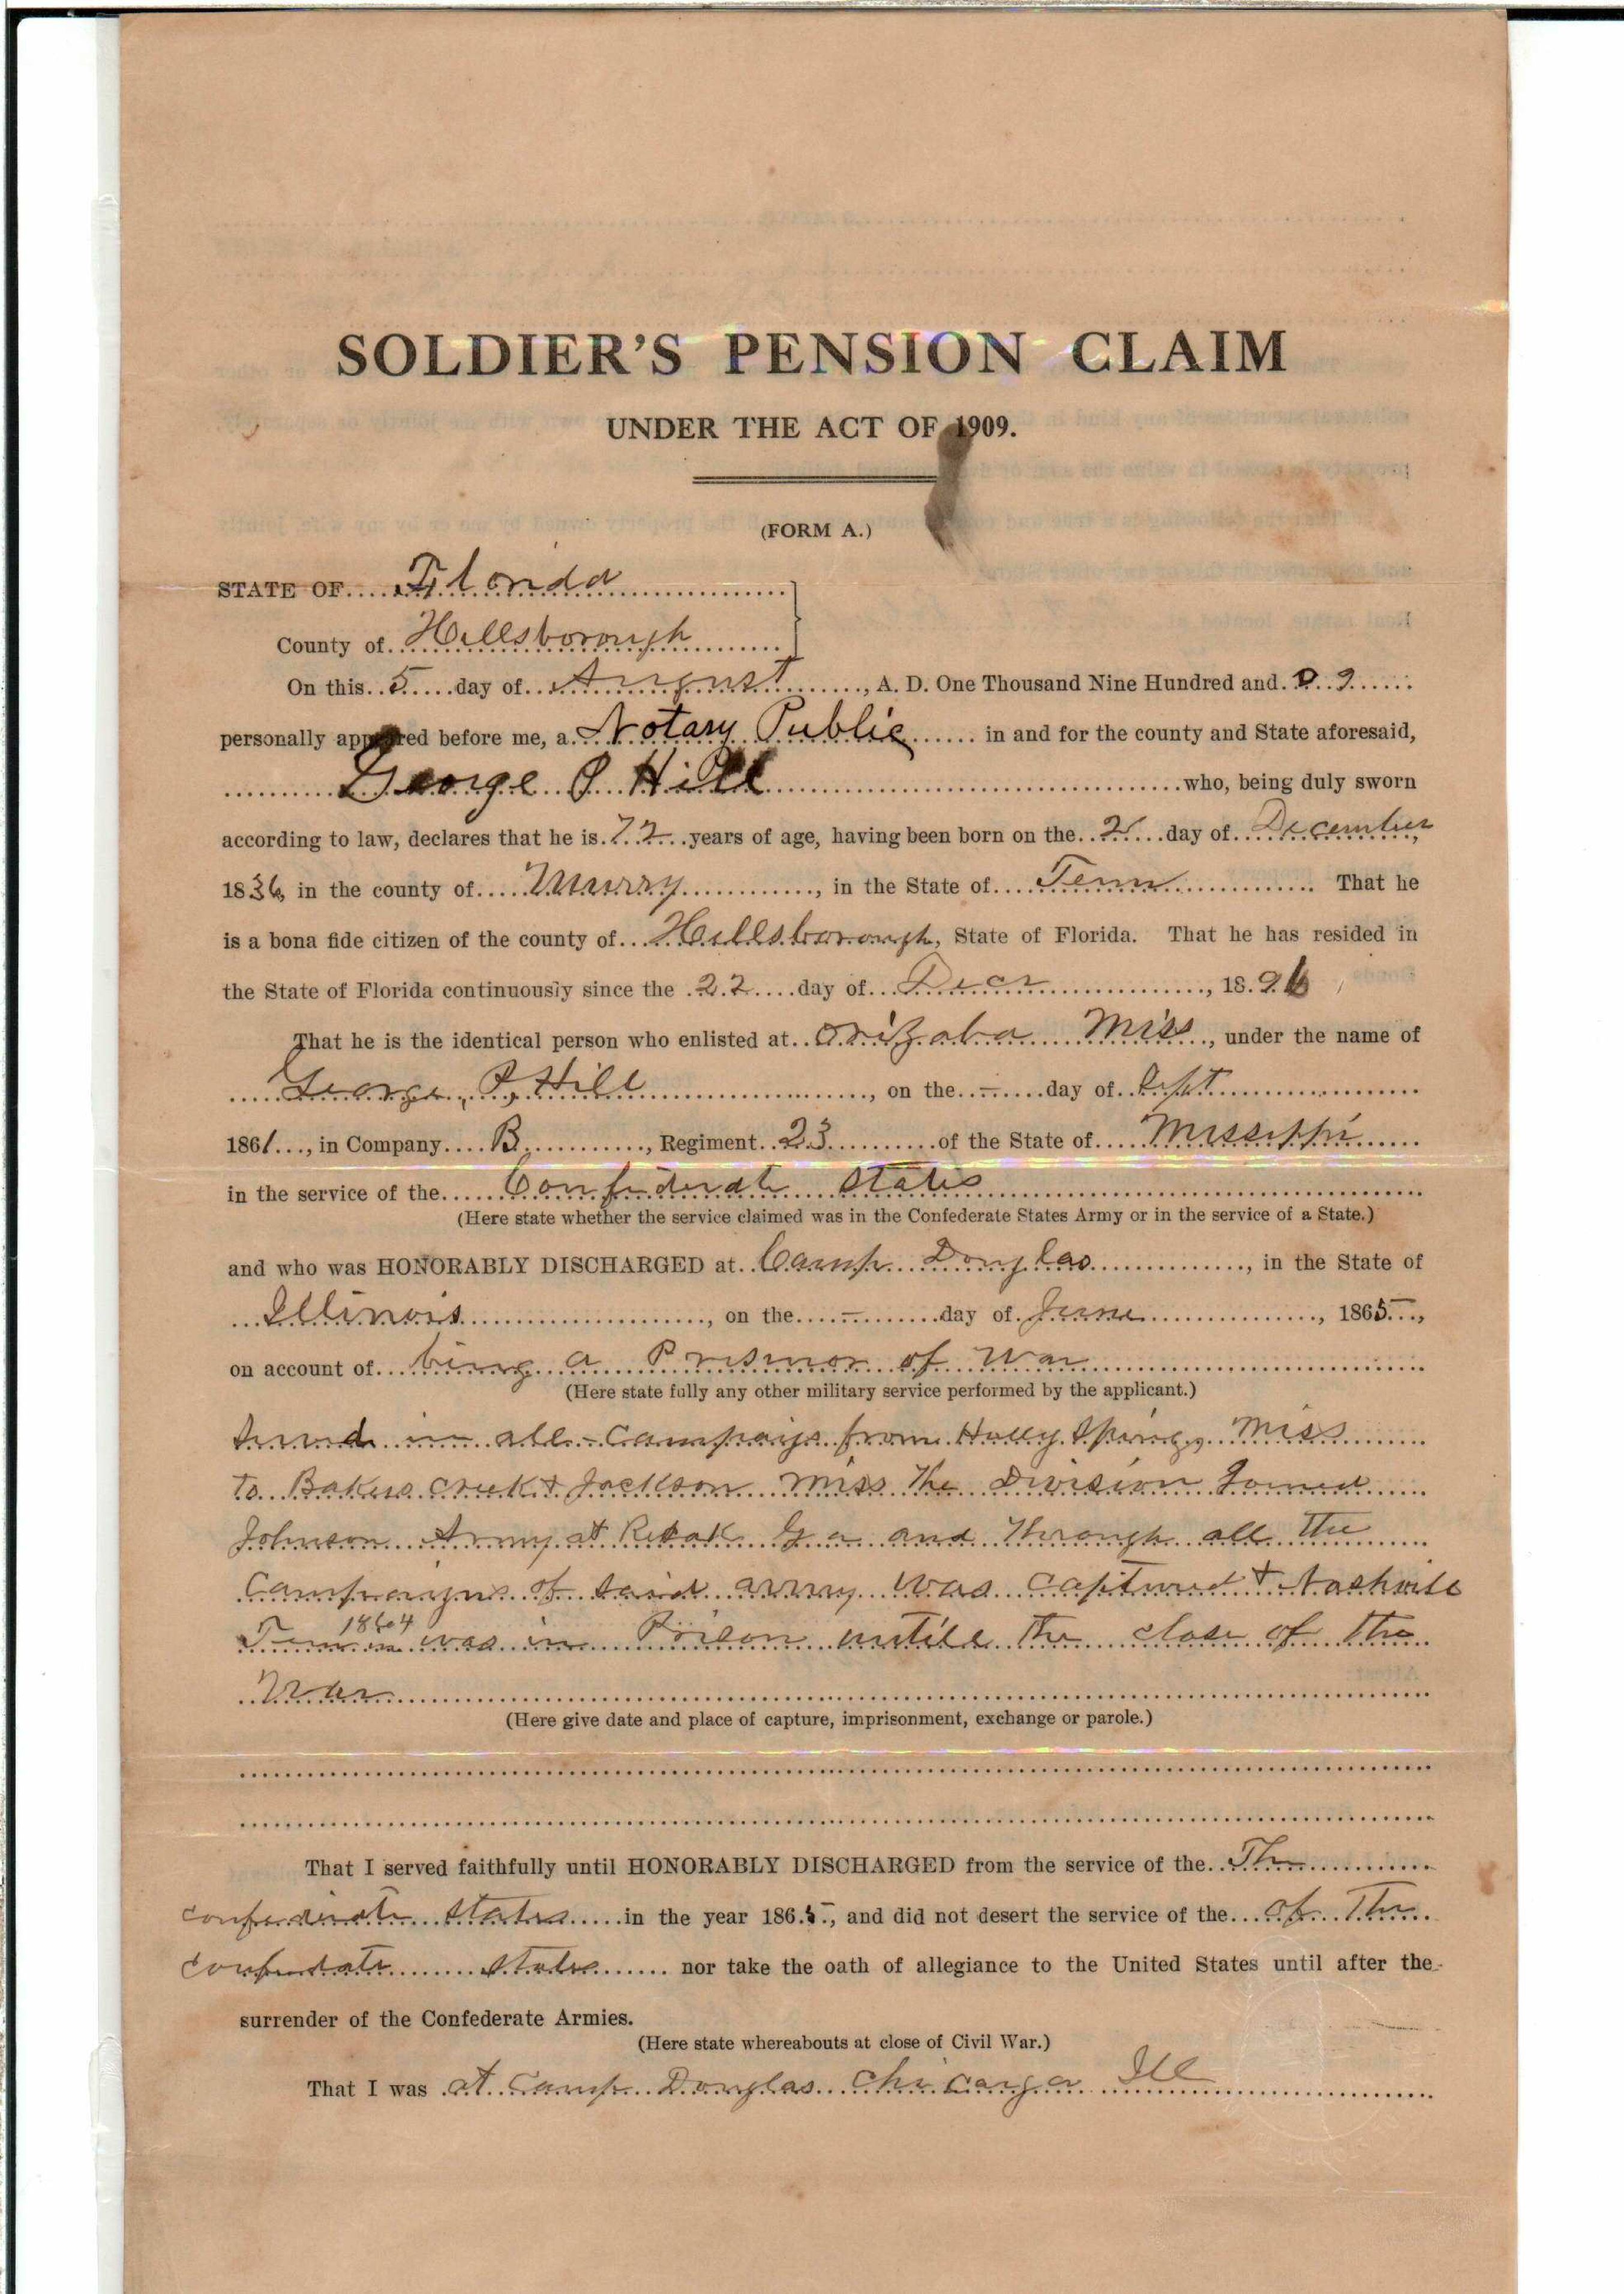 SOLDIER'S PENSION CLAIM
UNDER THE ACT OF 1909.
(FORM A.)
STATE OF Florida
County of Hillsborough
On this 5 day of August, A. D. One Thousand Nine Hundred and 09
personally appeared before me, a Notary Public in and for the county and State aforesaid,
George P Hill who, being duly sworn
according to law, declares that he is 72 years of age, having been born on the 2 day of December
1836, in the county of Murry, in the State of Tenn That he
is a bona fide citizen of the county of Hillsborough, State of Florida. That he has resided in
the State of Florida continuously since the 22 day of Decr, 1896
That he is the identical person who enlisted at Orizaba Miss, under the name of
George P Hill, on the – day of Sept
1861, in Company B, Regiment 23 of the State of Missippi
in the service of the Confederate States
(Here state whether the service claimed was in the Confederate States Army or in the service of a State.)
and who was HONORABLY DISCHARGED at Camp Douglas, in the State of
Illinois, on the – day of June, 1865,
on account of being a Prisnor of War
(Here state fully any other military service performed by the applicant.)
in all Campaigs from Holly Springs Miss
to Bakers Creek & Jackson Miss The Division Joined
Johnson Army at Ga and Through all The
Campaigns of said army was captured & Nashville
Tenn in 1864 was in Prison untill The close of the
War
(Here give date and place of capture, imprisonment, exchange or parole.)
That I served faithfully until HONORABLY DISCHARGED from the service of the The
confederate States in the year 1865, and did not desert the service of the of The
confedrate States nor take the oath of allegiance to the United States until after the
surrender of the Confederate Armies.
(Here state whereabouts at close of Civil War.)
That I was at Camp Douglas Chicargo Ill